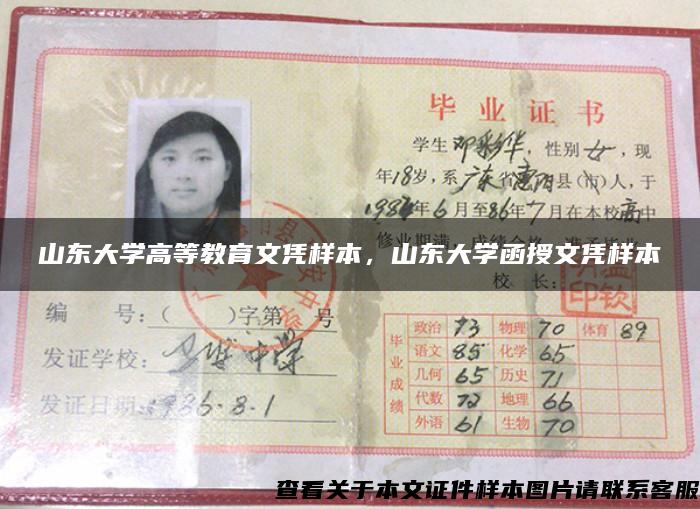 毕业证书
学生邓彩华，性别女，现
年18岁，系广东省惠阳县(市)人，于
1984年6月至86年7月在本校高中
修业期满，成绩合格，准予毕业
山东大学高等教育文凭样本，山东大学函授文凭样本
校 长：
编 号：( )字第 号
发证学校： 中学
发证日期：1986.8.1
毕业成绩
政治 73 物理 70 体育 89
语文 85 化学 65
几何 65 历史 71
代数 72 地理 66
外语 61 生物 70
查看关于本文证件样本图片请联系客服